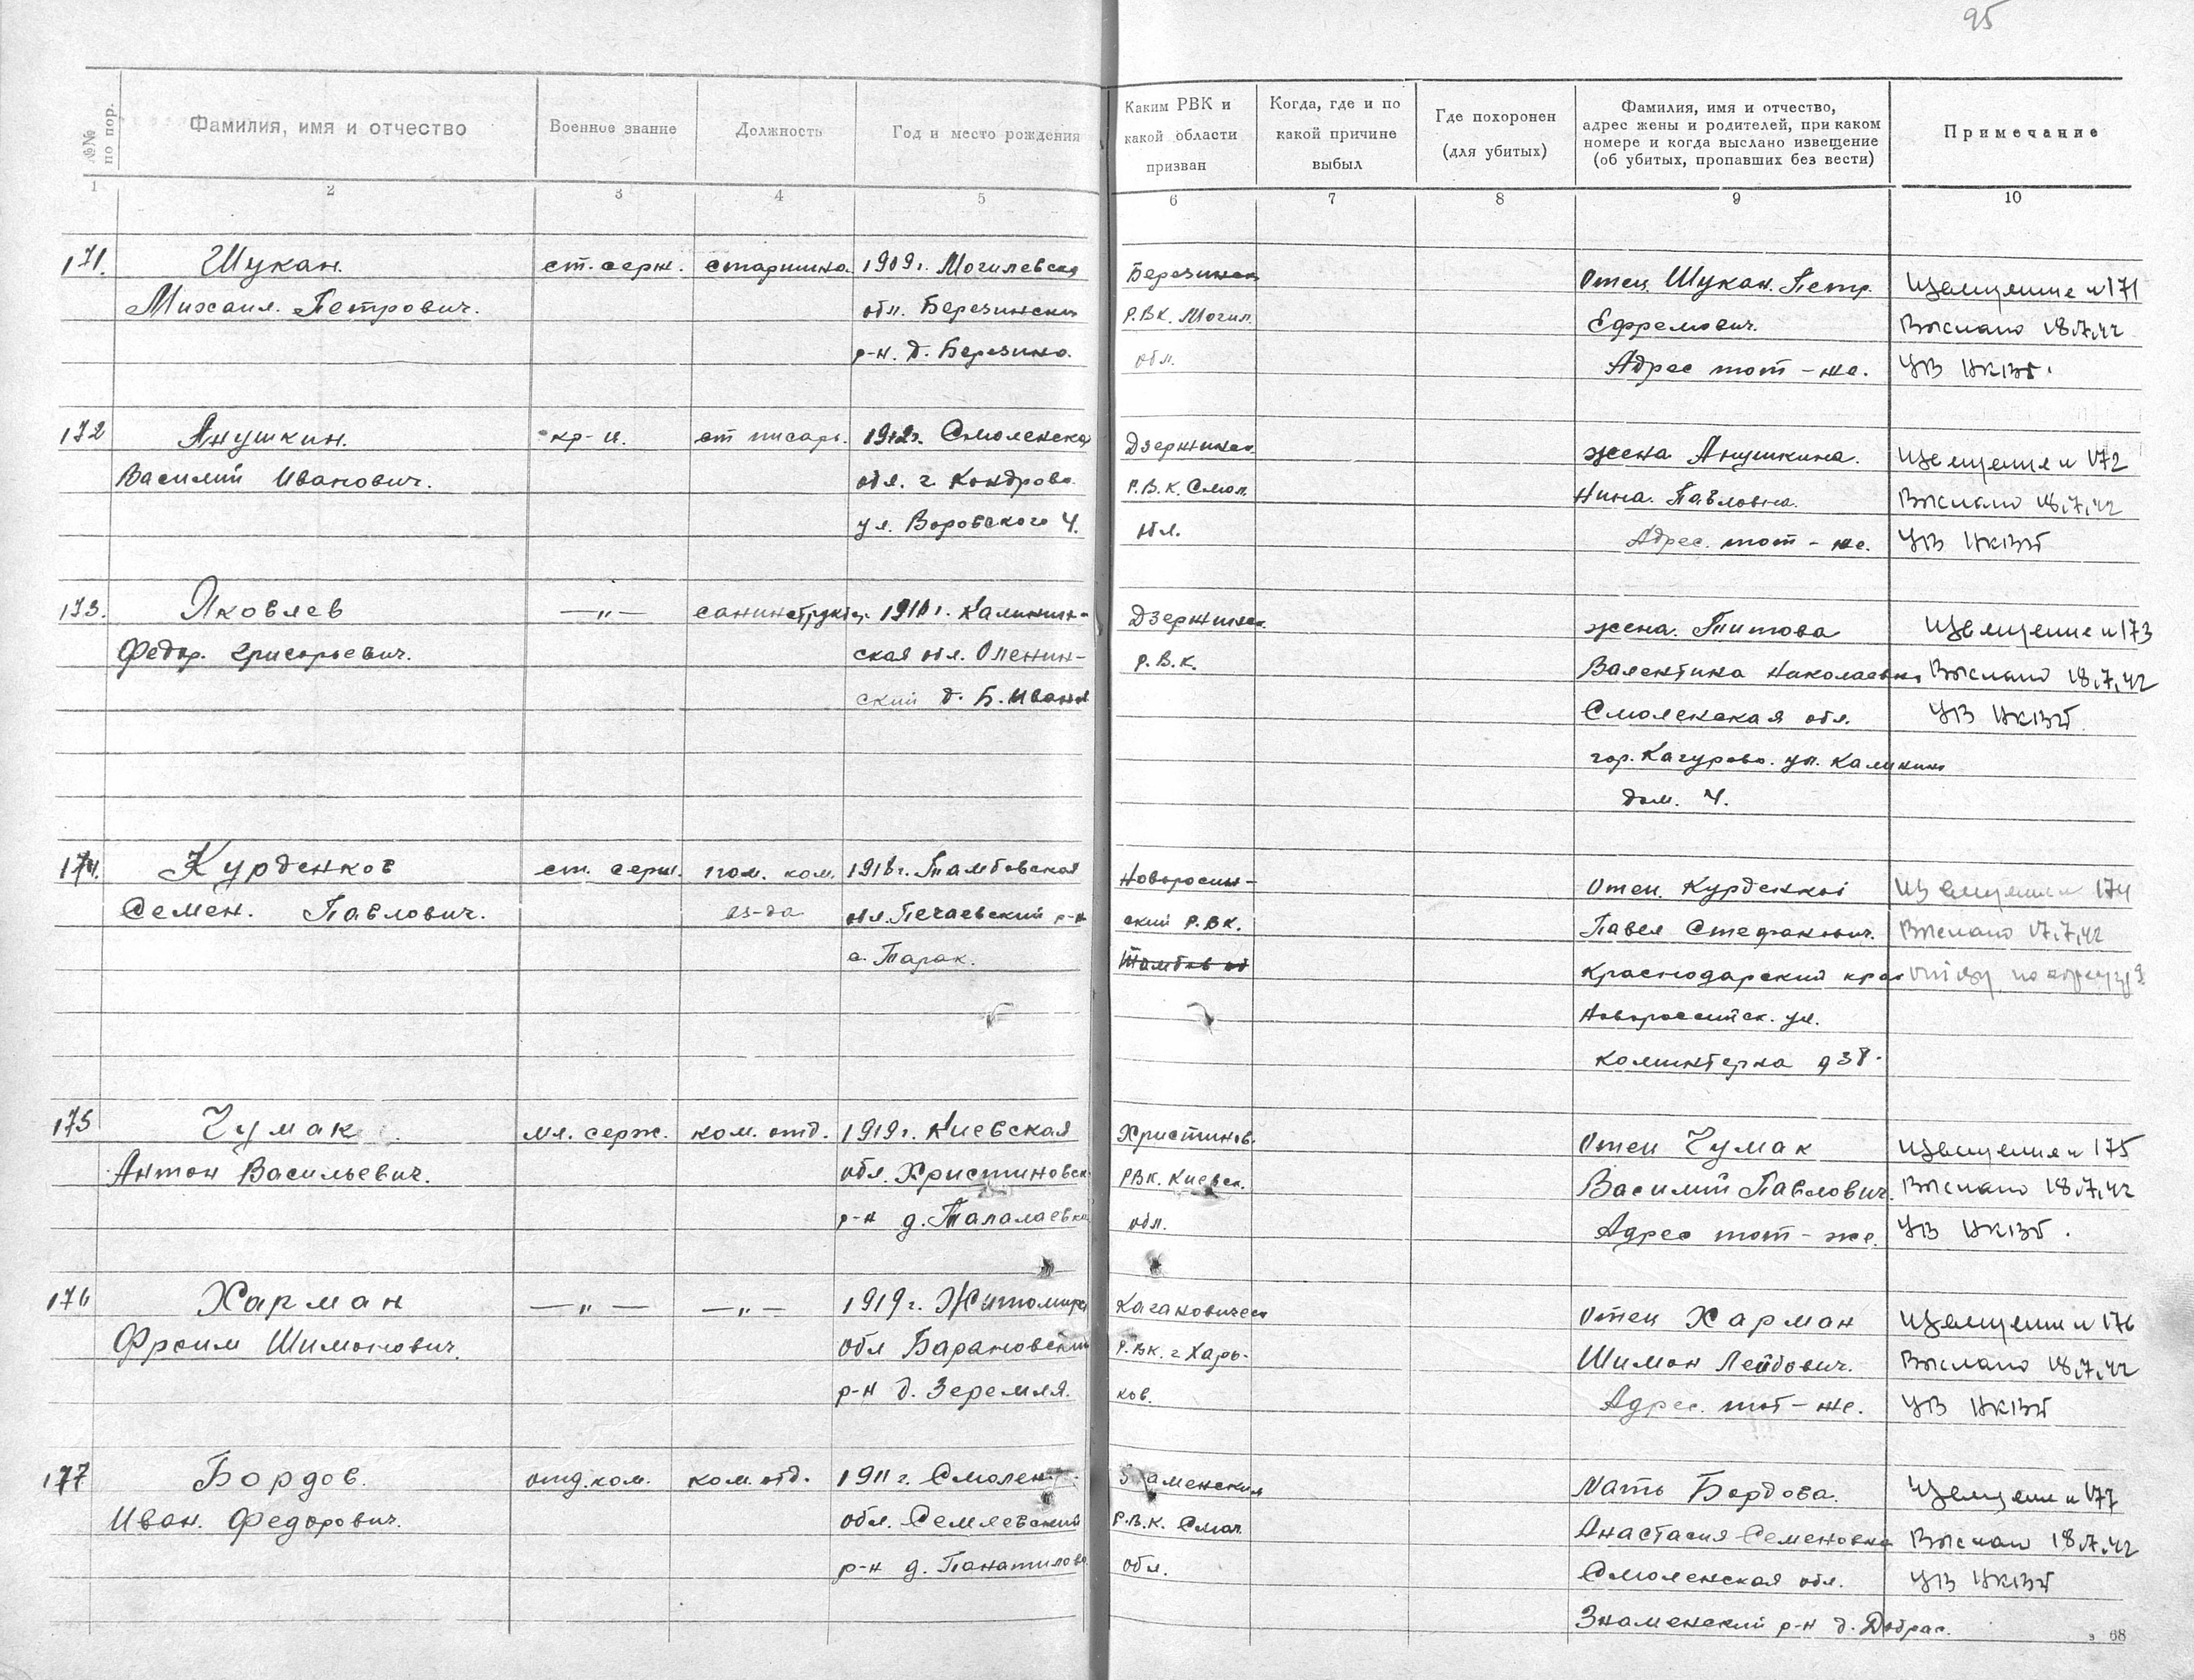 95
№№ по пор.
Фамилия, имя и отчество
Военное звание
Должность
Год и место рождения
Каким РВК и какой области призван
Когда, где и по какой причине выбыл
Где похоронен (для убитых)
Фамилия, имя и отчество, адрес жены и родителей, при каком номере и когда выслано извещение (об убитых, пропавших без вести)
Примечание
1 2 3 4 5 6 7 8 9 10
171. Шукан. ст. серж. старшина. 1909 г. Могилевская Березинск Отец Шукан. Петр. Извещение №171
Михаил. Петрович. обл. Березински Р.В.К. Могил. Ефремович. Выслано 18.7.42
р-н. д. Березино. обл. Адрес тот-же.
172 Анушкин. кр-ц. ст писарь. 1912г. Смоленская Дзержинск жена Анушкина. Извещение № 172
Василий Иванович. обл. г. Кондрово. Р.В.К. Смол. Нина. Павловна. Выслано 18.7.42
ул. Воровского 4. обл. Адрес. тот-же.
173. Яковлев —"— санинструктор. 1911 г. Калинин- Дзержинск. жена. Титова Извещение №173
Федор. Григорьевич. ская обл. Оленин- Р.В.К. Валентина Николаевна Выслано 18.7.42
ский д. Б. Смоленская обл.
гор. ул. Калинин
дом. 4.
174. Курденков ст. серж. пом. ком. 1918 г. Тамбовская Новоросий- Отец. Курденков Извещение № 174
Семен. Павлович. вз-да обл. Печаевский р-н ский Р.В.К. Павел Стефанович. Выслано 17.7.42
с. Тарак. Тамбов об Краснодарский край отцу по адресу
Новороссийск. ул.
Коминтерна д 38.
175 Чумак мл. серж. ком. отд. 1919 г. Киевская Христинов. Отец Чумак Извещение № 175
Антон Васильевич. обл. Христиновск РВК. Киевск. Василий Павлович. Выслано 18.7.42
р-н д. Талалаевка обл. Адрес тот-же.
176 Харман —"— —"— 1919 г. Житомирс Кагановическ Отец Харман Извещение № 176
Фроим Шимонович. обл Барановский Р.ВК. г Харь- Шимон Лейбович. Выслано 18.7.42
р-н д. Зеремля. ков. Адрес. тот-же.
177 Бордов. отд. ком. ком. отд. 1911 г. Смоленск. Знаменский Мать Бордова. Извещение № 177
Иван. Федорович. обл. Семлевский Р.В.К. Смол. Анастасия Семеновна Выслано 18.7.42
р-н д. обл. Смоленская обл.
Знаменский р-н д.
68